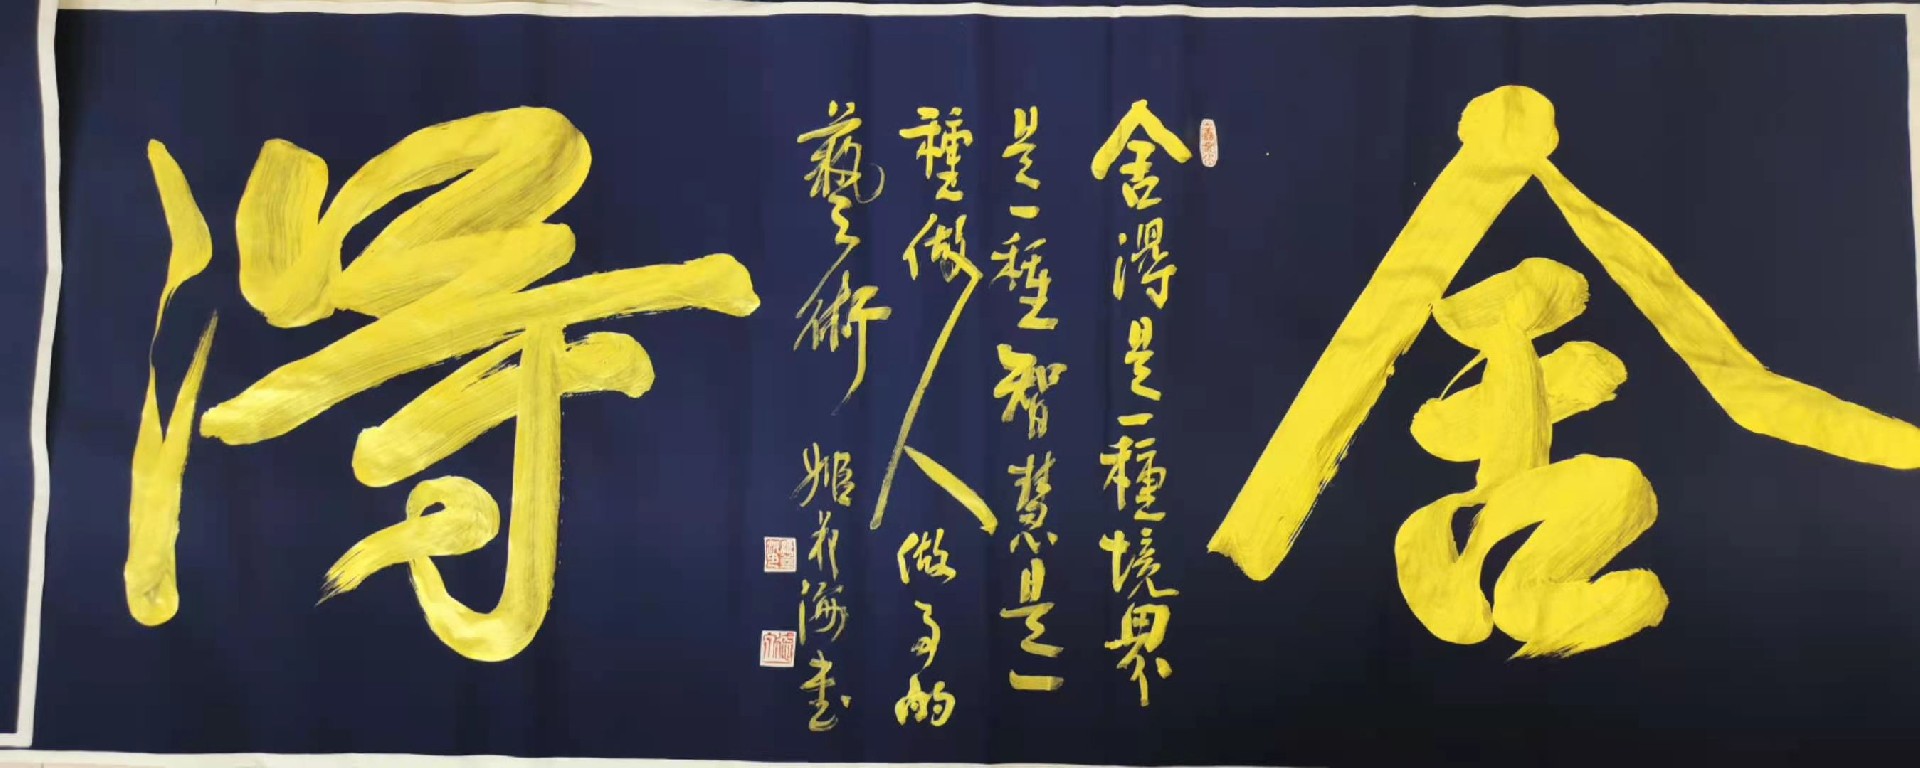 舍
舍得是一種境界
是一種智慧是一
種做人做事的
藝術 姬 海書
得